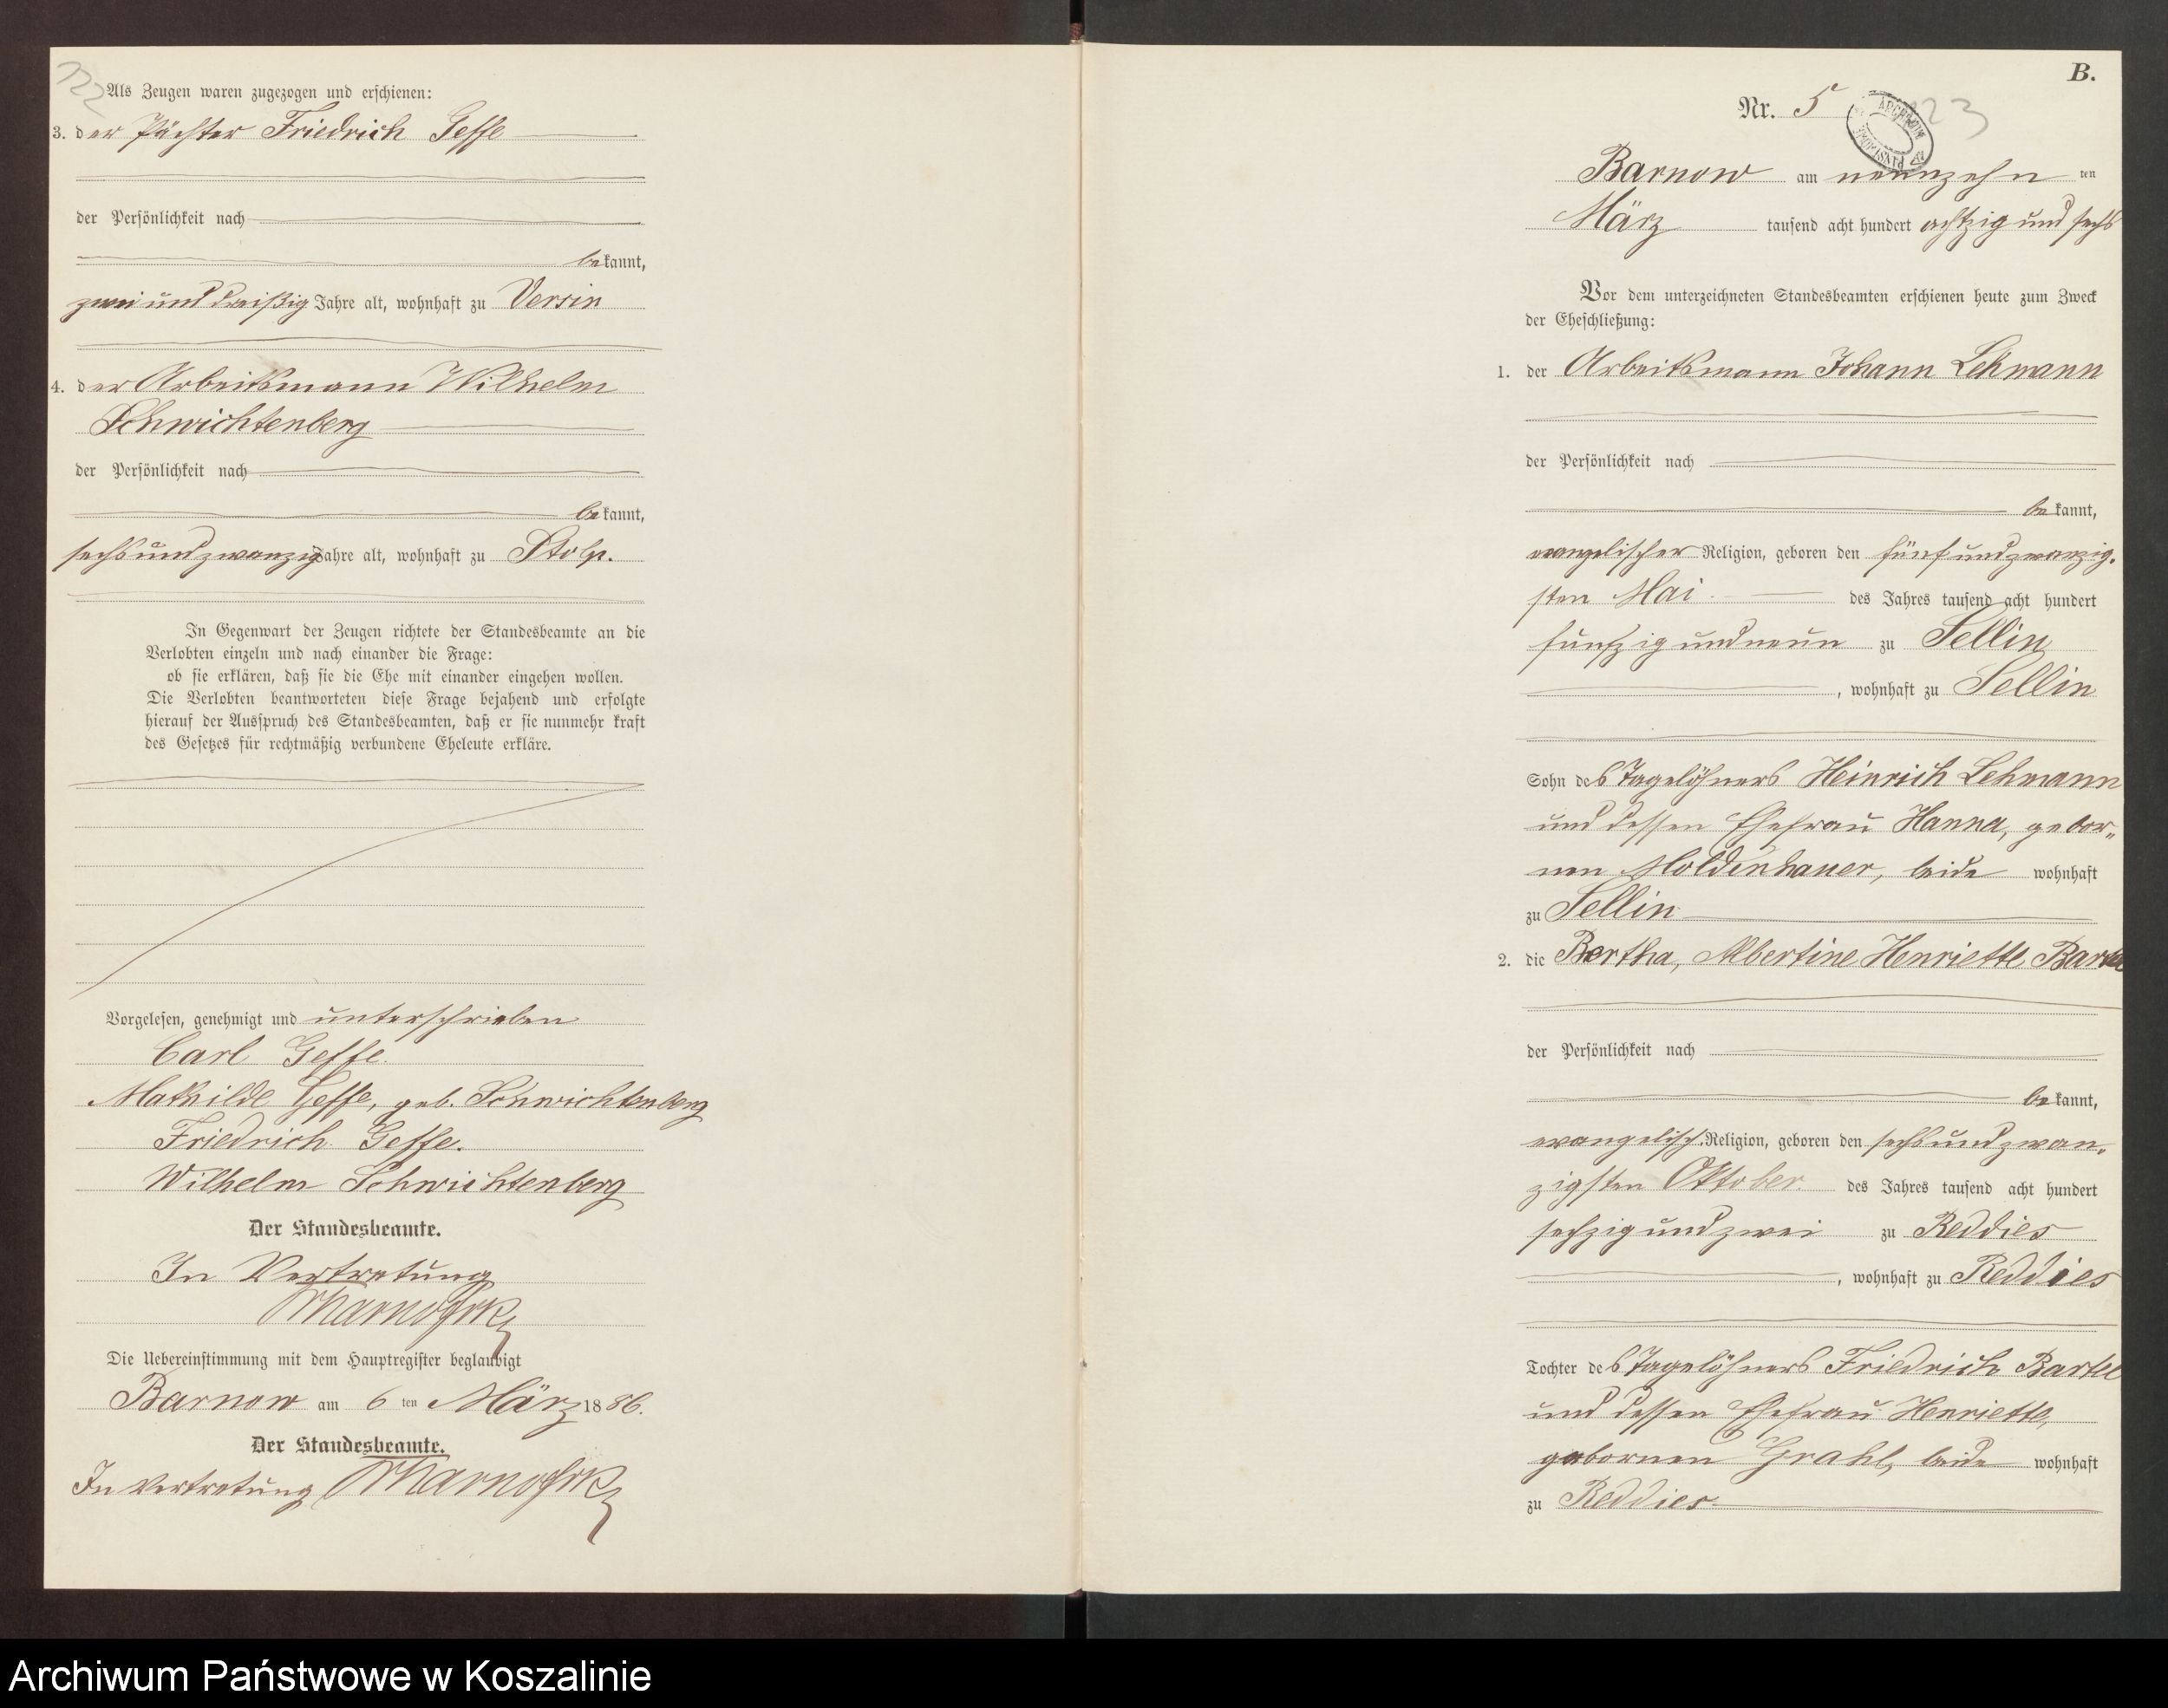 122
Als Zeugen waren zugezogen und erschienen:
3. der Pächter Friedrich Geffe
der Persönlichkeit nach
bekannt,
zwei und dreißig Jahre alt, wohnhaft zu Versin
4. der Arbeitsmann Wilhelm
Schwichtenberg
der Persönlichkeit nach
bekannt,
sechsundzwanzig Jahre alt, wohnhaft zu Stolp.
In Gegenwart der Zeugen richtete der Standesbeamte an die
Verlobten einzeln und nach einander die Frage:
ob sie erklären, daß sie die Ehe mit einander eingehen wollen.
Die Verlobten beantworteten diese Frage bejahend und erfolgte
hierauf der Ausspruch des Standesbeamten, daß er sie nunmehr kraft
des Gesetzes für rechtmäßig verbundene Eheleute erkläre.
Vorgelesen, genehmigt und unterschrieben
Carl Geffe.
Mathilde Geffe, geb. Schwichtenberg
Friedrich Geffe.
Wilhelm Schwichtenberg
Der Standesbeamte.
In Vertretung
Die Uebereinstimmung mit dem Hauptregister beglaubigt
Barnow am 6 ten März 1886.
Der Standesbeamte.
In Vertretung
B.
Nr. 5
123
Barnow am neunzehn ten
März tausend acht hundert achtzig und sechs
Vor dem unterzeichneten Standesbeamten erschienen heute zum Zweck
der Eheschließung:
1. der Arbeitsmann Johann Lehmann
der Persönlichkeit nach
bekannt,
evangelischer Religion, geboren den fünfundzwanzig-
sten Mai des Jahres tausend acht hundert
fünfzig und neun zu Sellin
, wohnhaft zu Sellin
Sohn des Tagelöhners Heinrich Lehmann
und dessen Ehefrau Hanna, gebor-
nen Moldenhauer, beide wohnhaft
zu Sellin
2. die Bertha, Albertine Henriette
der Persönlichkeit nach
bekannt,
evangelisch. Religion, geboren den sechsundzwan-
zigsten Oktober des Jahres tausend acht hundert
sechzig und zwei zu Reddies
, wohnhaft zu Reddies
Tochter des Tagelöhners Friedrich
und dessen Ehefrau Henriette,
gebornen Grahl, beide wohnhaft
zu Reddies
Archiwum Państwowe w Koszalinie